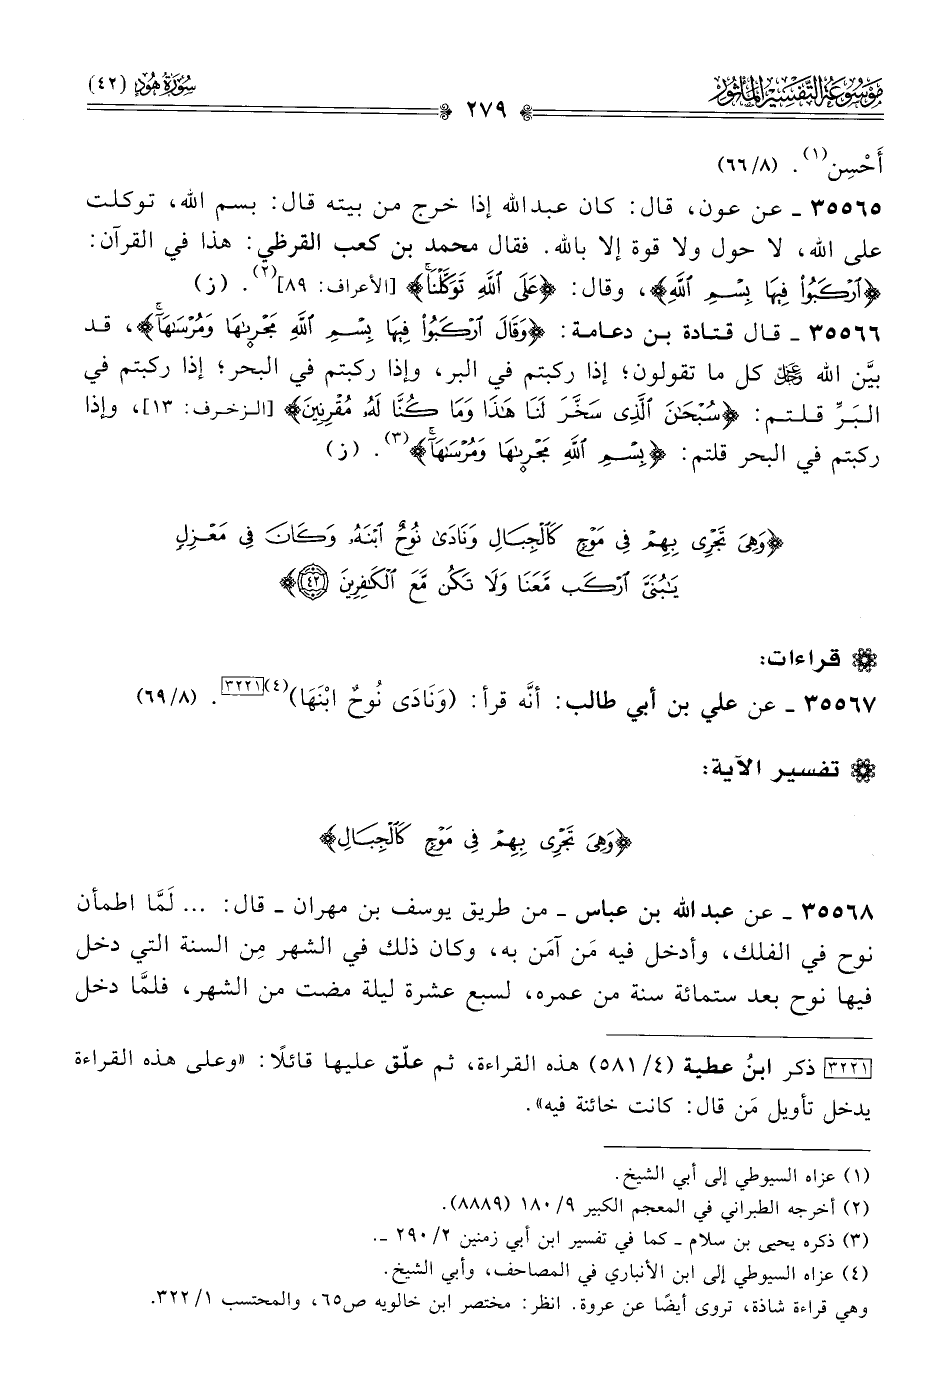 موسوعة التفسير المأثور
٢٧٩
سورة هود (٤٢)
أَحْسِن(١). (٦٦/٨)
٣٥٥٦٥ ـ عن عون، قال: كان عبدالله إذا خرج من بيته قال: بسم الله، توكلت
على الله، لا حول ولا قوة إلا بالله. فقال محمد بن كعب القرظي: هذا في القرآن:
﴿ٱرْكَبُوا۟ فِيهَا بِسْمِ ٱللَّهِ﴾، وقال: ﴿عَلَى ٱللَّهِ تَوَكَّلْنَاۚ﴾ [الأعراف: ٨٩](٢). (ز)
٣٥٥٦٦ ـ قال قتادة بن دعامة: ﴿وَقَالَ ٱرْكَبُوا۟ فِيهَا بِسْمِ ٱللَّهِ مَجْر۪ىٰهَا وَمُرْسَىٰهَآۚ﴾، قد
بيَّن الله ﷻ كل ما تقولون؛ إذا ركبتم في البر، وإذا ركبتم في البحر؛ إذا ركبتم في
البَرِّ قلتم: ﴿سُبْحَٰنَ ٱلَّذِى سَخَّرَ لَنَا هَٰذَا وَمَا كُنَّا لَهُۥ مُقْرِنِينَ﴾ [الزخرف: ١٣]، وإذا
ركبتم في البحر قلتم: ﴿بِسْمِ ٱللَّهِ مَجْر۪ىٰهَا وَمُرْسَىٰهَآۚ﴾(٣). (ز)
﴿وَهِىَ تَجْرِى بِهِمْ فِى مَوْجٍ كَٱلْجِبَالِ وَنَادَىٰ نُوحٌ ٱبْنَهُۥ وَكَانَ فِى مَعْزِلٍ
يَٰبُنَىَّ ٱرْكَب مَّعَنَا وَلَا تَكُن مَّعَ ٱلْكَٰفِرِينَ ٤٢﴾
قراءات:
٣٥٥٦٧ ـ عن علي بن أبي طالب: أنَّه قرأ: (وَنَادَى نُوحٌ ابْنَهَا)(٤)[٣٢٢١]. (٦٩/٨)
تفسير الآية:
﴿وَهِىَ تَجْرِى بِهِمْ فِى مَوْجٍ كَٱلْجِبَالِ﴾
٣٥٥٦٨ ـ عن عبدالله بن عباس ـ من طريق يوسف بن مهران ـ قال: ... لَمَّا اطمأن
نوح في الفلك، وأدخل فيه مَن آمَن به، وكان ذلك في الشهر مِن السنة التي دخل
فيها نوح بعد ستمائة سنة من عمره، لسبع عشرة ليلة مضت من الشهر، فلمَّا دخل
[٣٢٢١] ذكر ابنُ عطية (٤/ ٥٨١) هذه القراءة، ثم علّق عليها قائلًا: «وعلى هذه القراءة
يدخل تأويل مَن قال: كانت خائنة فيه».
(١) عزاه السيوطي إلى أبي الشيخ.
(٢) أخرجه الطبراني في المعجم الكبير ٩/ ١٨٠ (٨٨٨٩).
(٣) ذكره يحيى بن سلام ـ كما في تفسير ابن أبي زمنين ٢/ ٢٩٠ ـ.
(٤) عزاه السيوطي إلى ابن الأنباري في المصاحف، وأبي الشيخ.
وهي قراءة شاذة، تروى أيضًا عن عروة. انظر: مختصر ابن خالويه ص٦٥، والمحتسب ١/ ٣٢٢.